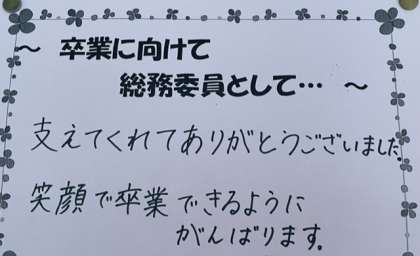 ～ 卒業に向けて
総務委員として… ～
支えてくれてありがとうございました。
笑顔で卒業できるように
がんばります。